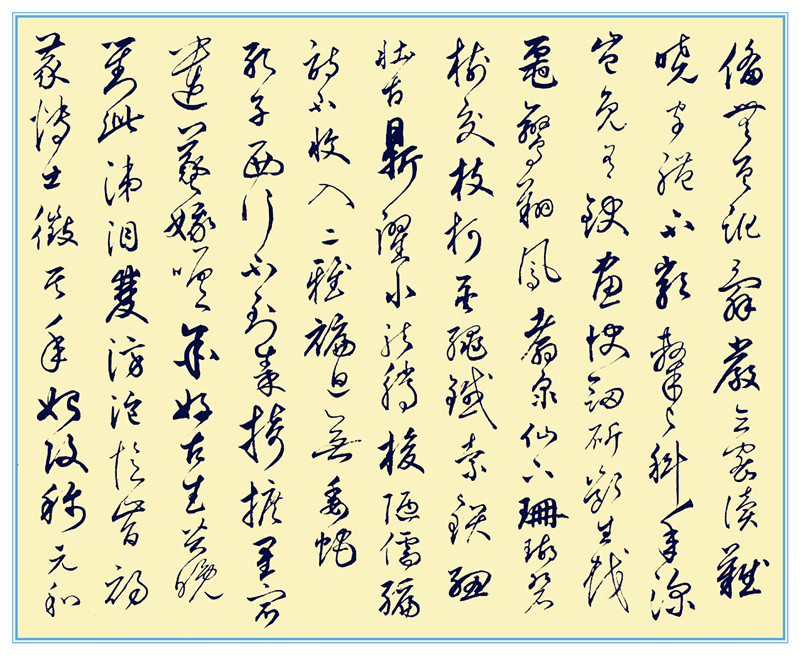 備無差訛辭嚴義密讀難
曉字體不類隸與科年深
豈免有缺畫快劍斫斷生蛟
鼉鸞翔鳳翥眾仙下珊瑚碧
樹交枝柯金繩鐵索鎖鈕
壯古鼎躍水龍騰梭陋儒編
詩不收入二雅褊迫無委蛇
孔子西行不到秦掎摭星宿
遺羲娥嗟余好古生苦晚
對此涕泪雙滂沱憶昔初
蒙博士徵其年始改稱元和